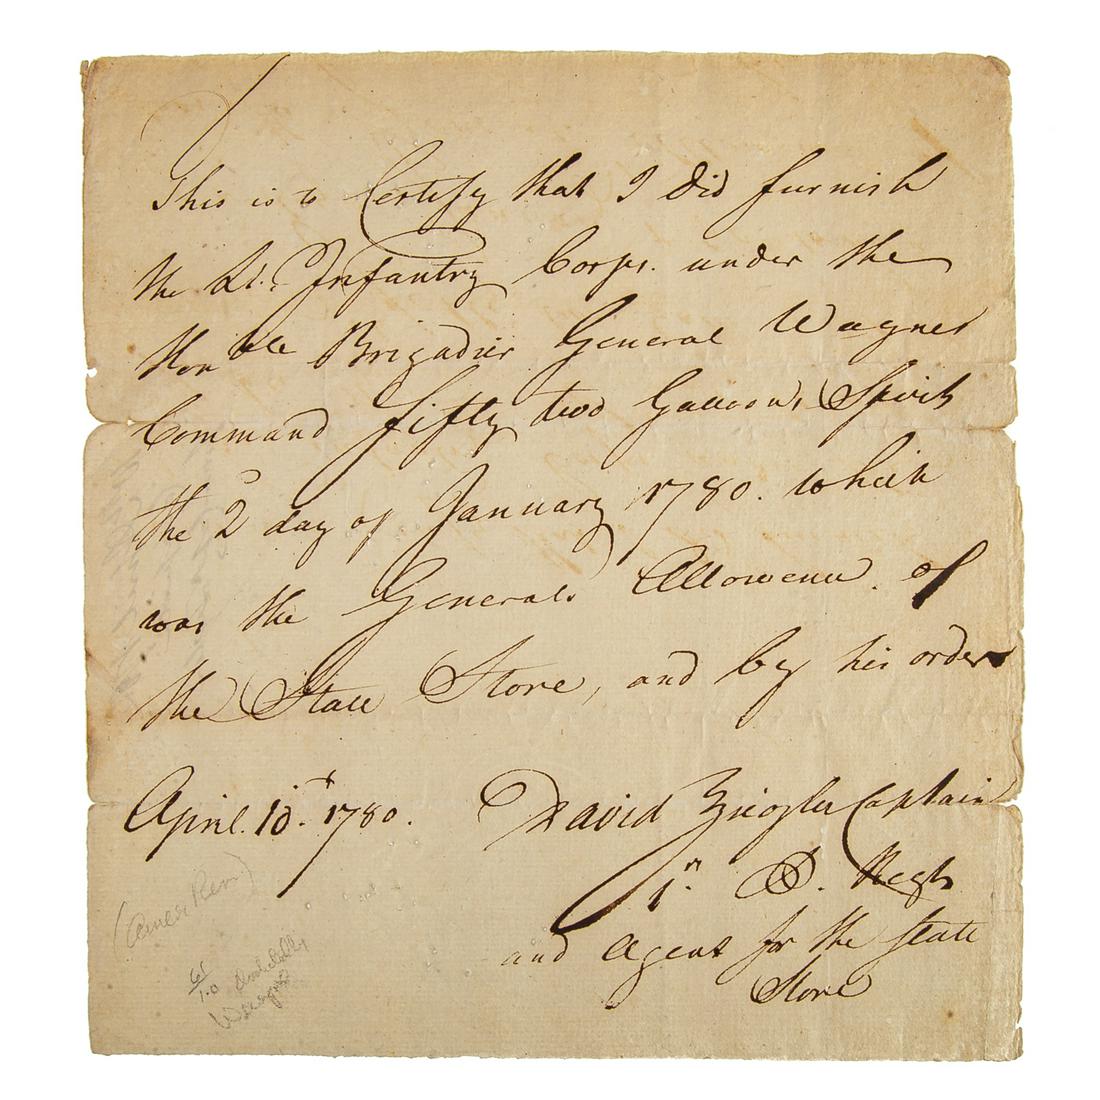 This is to Certify that I did furnish
the Lt. Infantry Corps. under the
Honble Brigadier General Waynes
Command fifty two Gallons, Spirits
the 2 day of January 1780. which
was the Generals Allowence. of
the State Store, and by his order
April. 10. 1780. David Ziegler Captain
1st. P. Regt
and Agent for the State
Store
(Amer Rev)